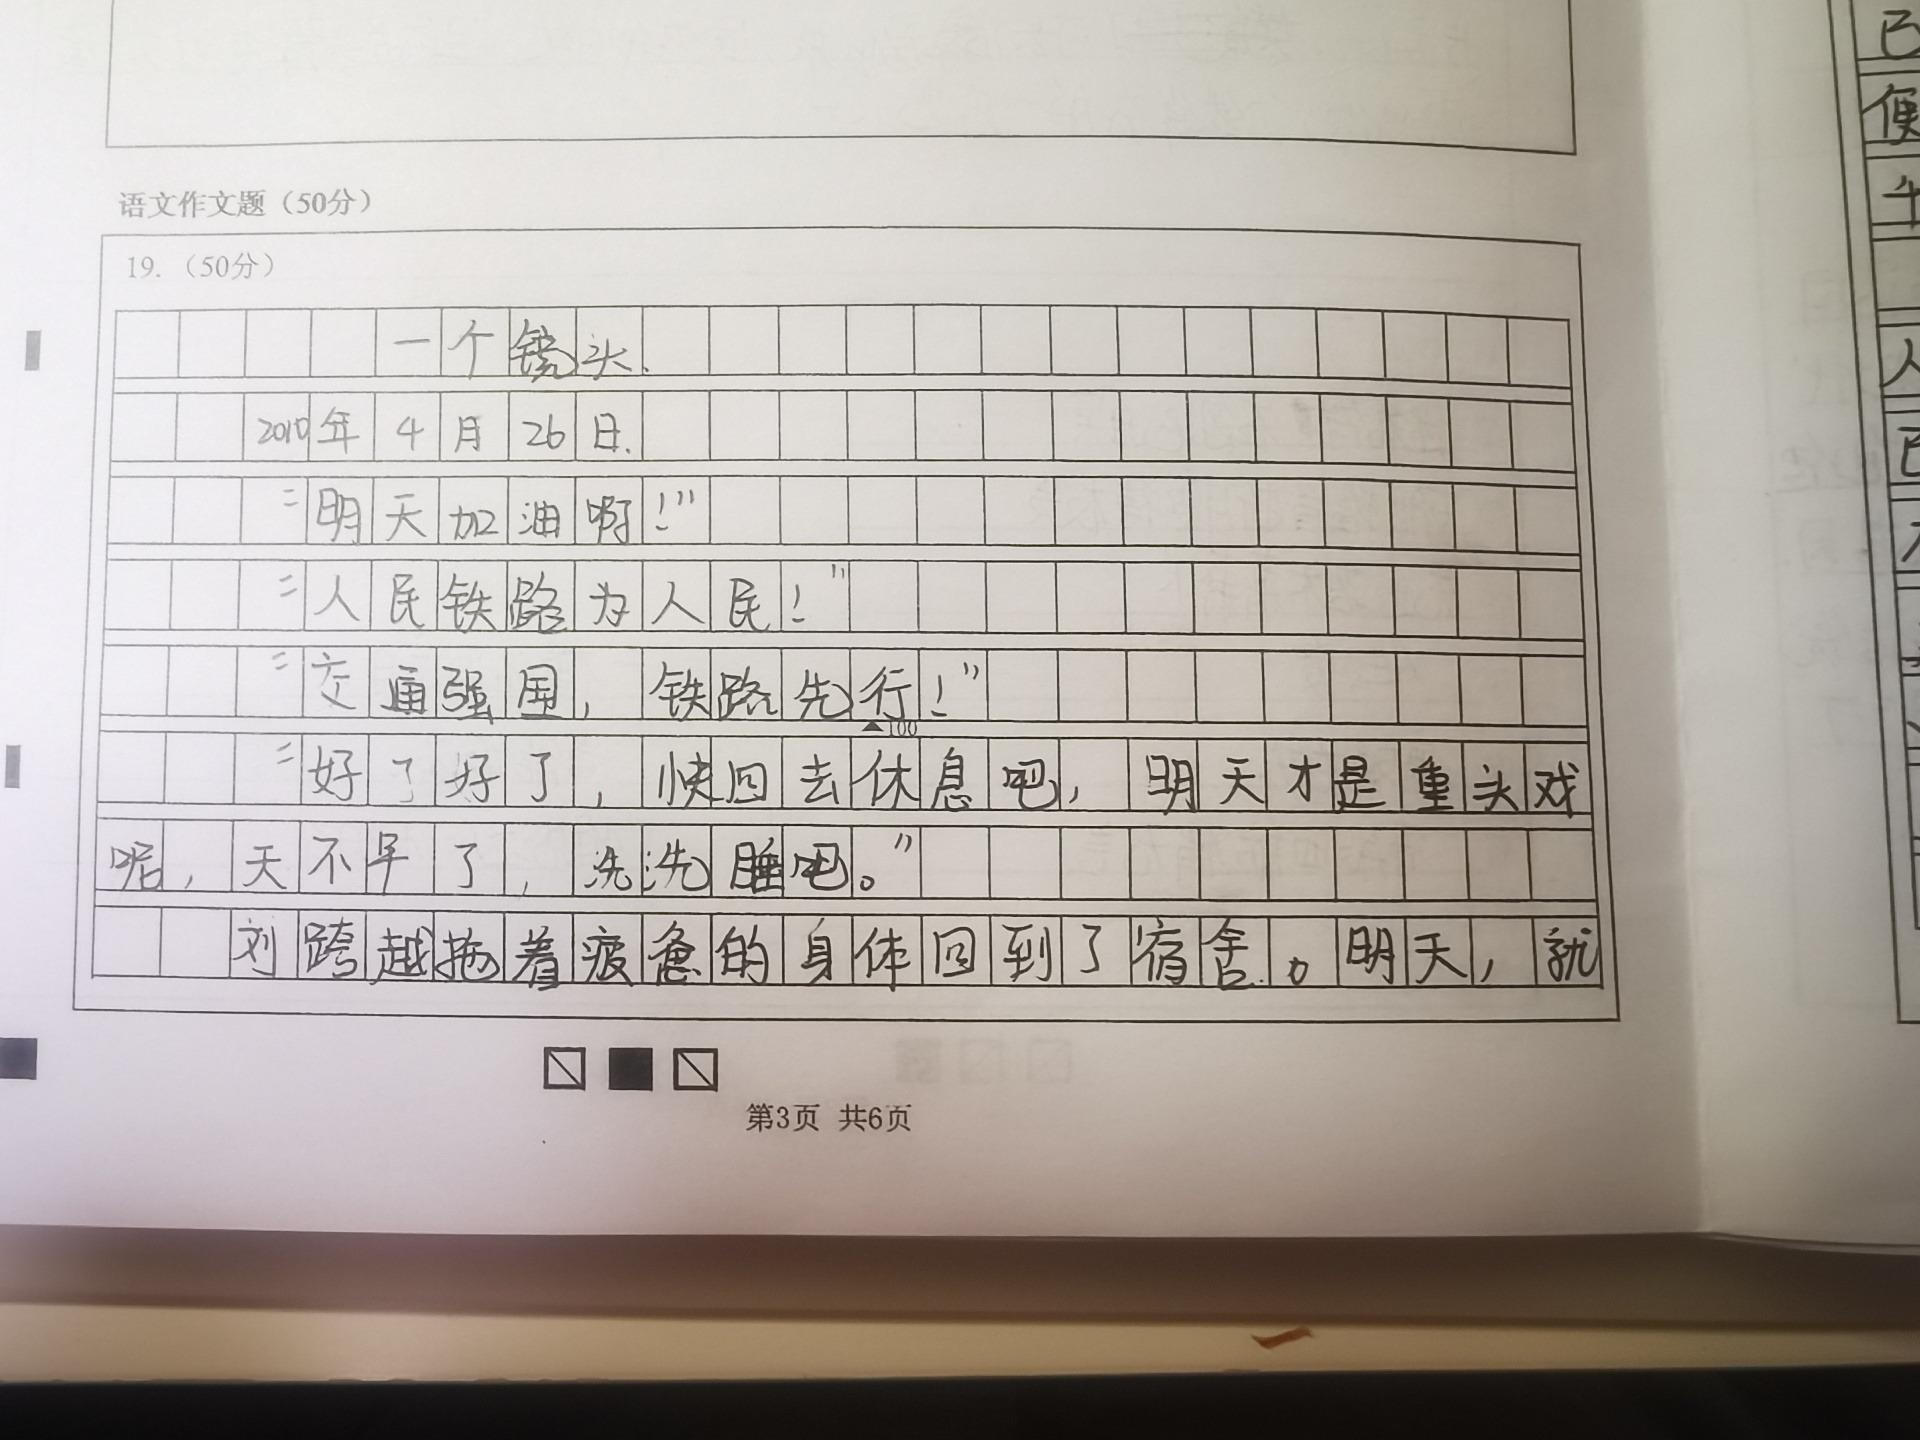 语文作文题（50分）
19.（50分）
一个镜头.
2010年4月26日.
“明天加油啊！”
“人民铁路为人民！”
“交通强国，铁路先行！”
▲100
“好了好了，快回去休息吧，明天才是重头戏
呢，天不早了，洗洗睡吧。”
刘跨越拖着疲惫的身体回到了宿舍。明天，就
第3页 共6页
已
便
人